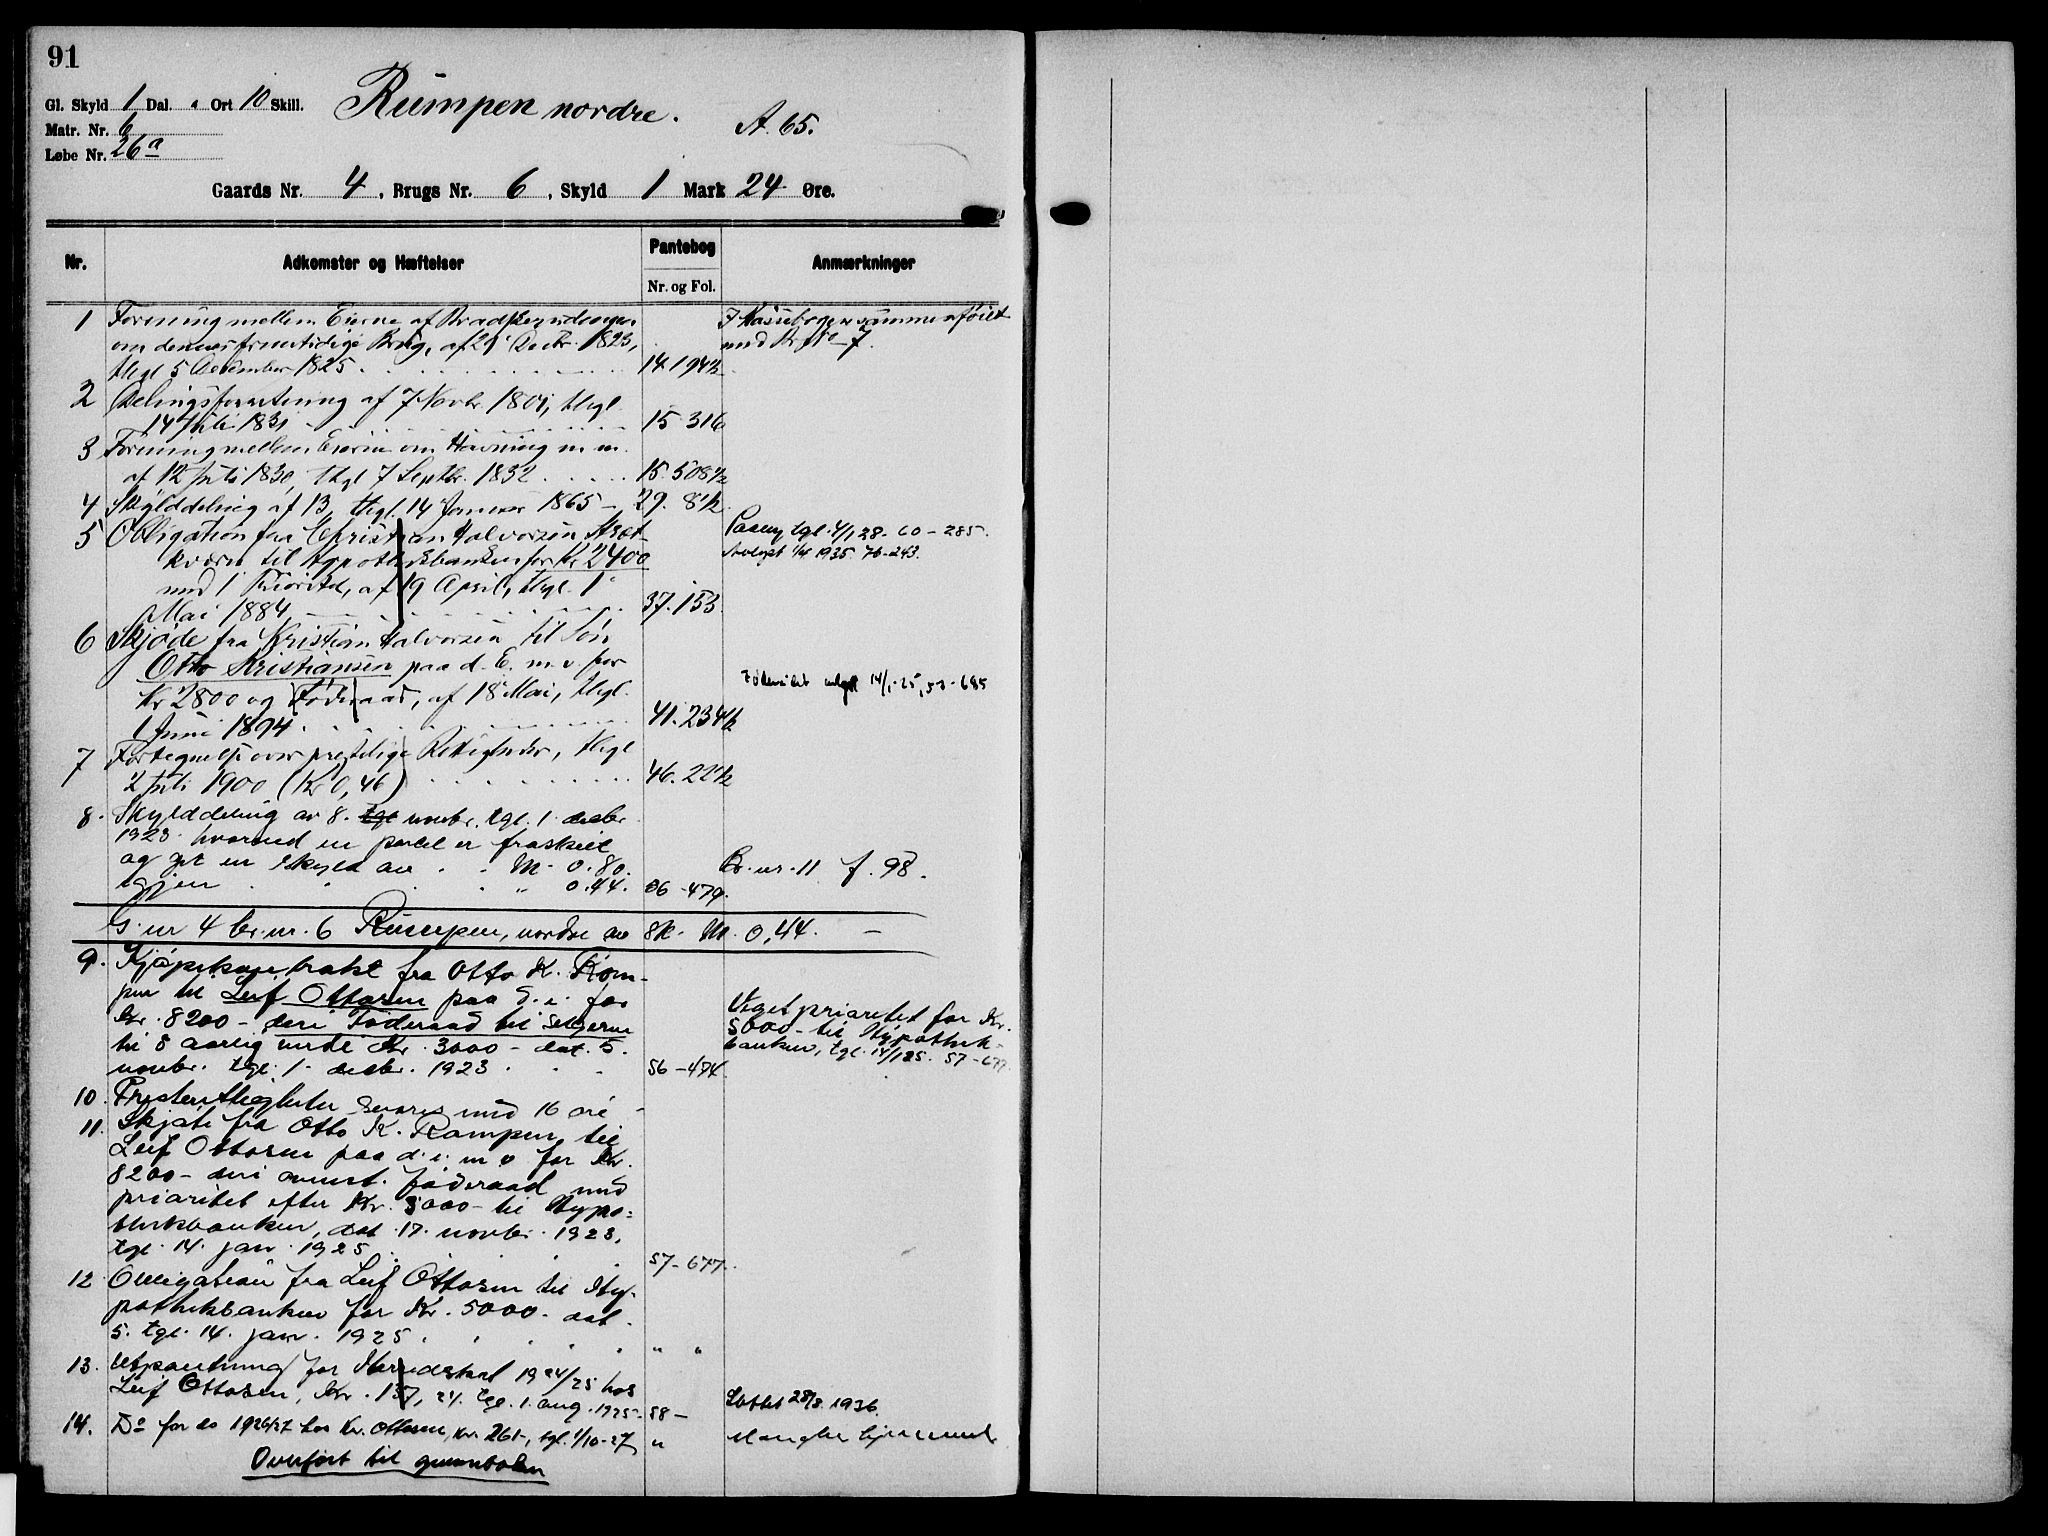 91
Gl. Skyld 1 Dal. " Ort 10 Skill.
Rumpen nordre.
A. 65.
Matr. Nr. 6
Løbe Nr. 26a
Gaards Nr. 4, Brugs Nr. 6, Skyld 1 Mark 24 Øre.
Nr.
Adkomster og Hæftelser
Pantebog
Nr. og Fol.
Anmærkninger
1 Forening mellem Eierne af
om dennes fremtidige Brug, af 21 Decbr. 1823,
thgl 5 December 1825 14. 194½
med Br No 7.
2 Delingsforretning af 7 Novbr. 1801, thgl.
14 Juli 1831 15 316
3 Forening mellem Eierne om Havning m. m.
af 12 Juli 1830, thgl 7 Septbr. 1832 15. 508½
4 Skylddeling af 13, thgl. 14 Januar 1865 29. 8½
5 Obligation fra Christian Halvorsen
til Hypothekbanken for Kr 2400
med 1 Prioritet, af 19 April, thgl. 1
Mai 1884 37. 153.
tgl. 4/1 28. 60-285.
1935. 76-243.
6 Skjøde fra Kristian Halvorsen til Søn
Otto Kristiansen paa d. E. m. v. for
Kr 2800 og Føderaad, af 18 Mai, thgl.
1 Juni 1894 41. 234½
14/1-25, 57-685
7 Fortegnelse over prestelige Rettigheder, thgl
2 Juli 1900 (Kr 0,46) 46. 22½
8. Skylddeling av 8. tgl novbr. tgl. 1. decbr
1923 hvorved en parcel er fraskilt
og git en skyld av M. 0.80.
igjen " 0.44. 56-479.
Br. nr. 11 f. 98.
G. nr 4 br. nr. 6 Rumpen, nordre av sk. M. 0,44. -
9. Kjøpekontrakt fra Otto K. Rom-
pen til Leif Ottosen paa d. e. for
kr. 8200 - deri Føderaad til selgerne
til 5 aarlig verdi Kr. 3000 - dat. 5.
novbr. tgl. 1. decbr. 1923 56-474.
Veget prioritet for Kr.
5000 - til Hypothek-
banken, tgl. 14/1 25. 57-677.
10. Presterettigheter svares med 16 øre -
11. Skjøte fra Otto K. Rampen til
Leif Ottosen paa d. e. m v for Kr.
8200 - deri føderaad med
prioritet efter Kr. 5000 - til Hypo-
thekbanken, dat. 17. novbr. 1923,
tgl. 14. jan. 1925 57-677.
12 Obligation fra Leif Ottosen til Hy-
pothekbanken for Kr. 5000 - dat.
5. tgl. 14. jan. 1925 " "
13. Utpantning for Herredskat 1924/25 hos
Leif Ottosen, Kr. 137,24. tgl. 1. aug. 1925 - 58 -
Slettet 28/8 1936.
14. Do for do 1926/27 hos Kr. Ottosen, kr. 261-, tgl. 1/10-27 "
Mangler hjemmel
Overført til grunnboken